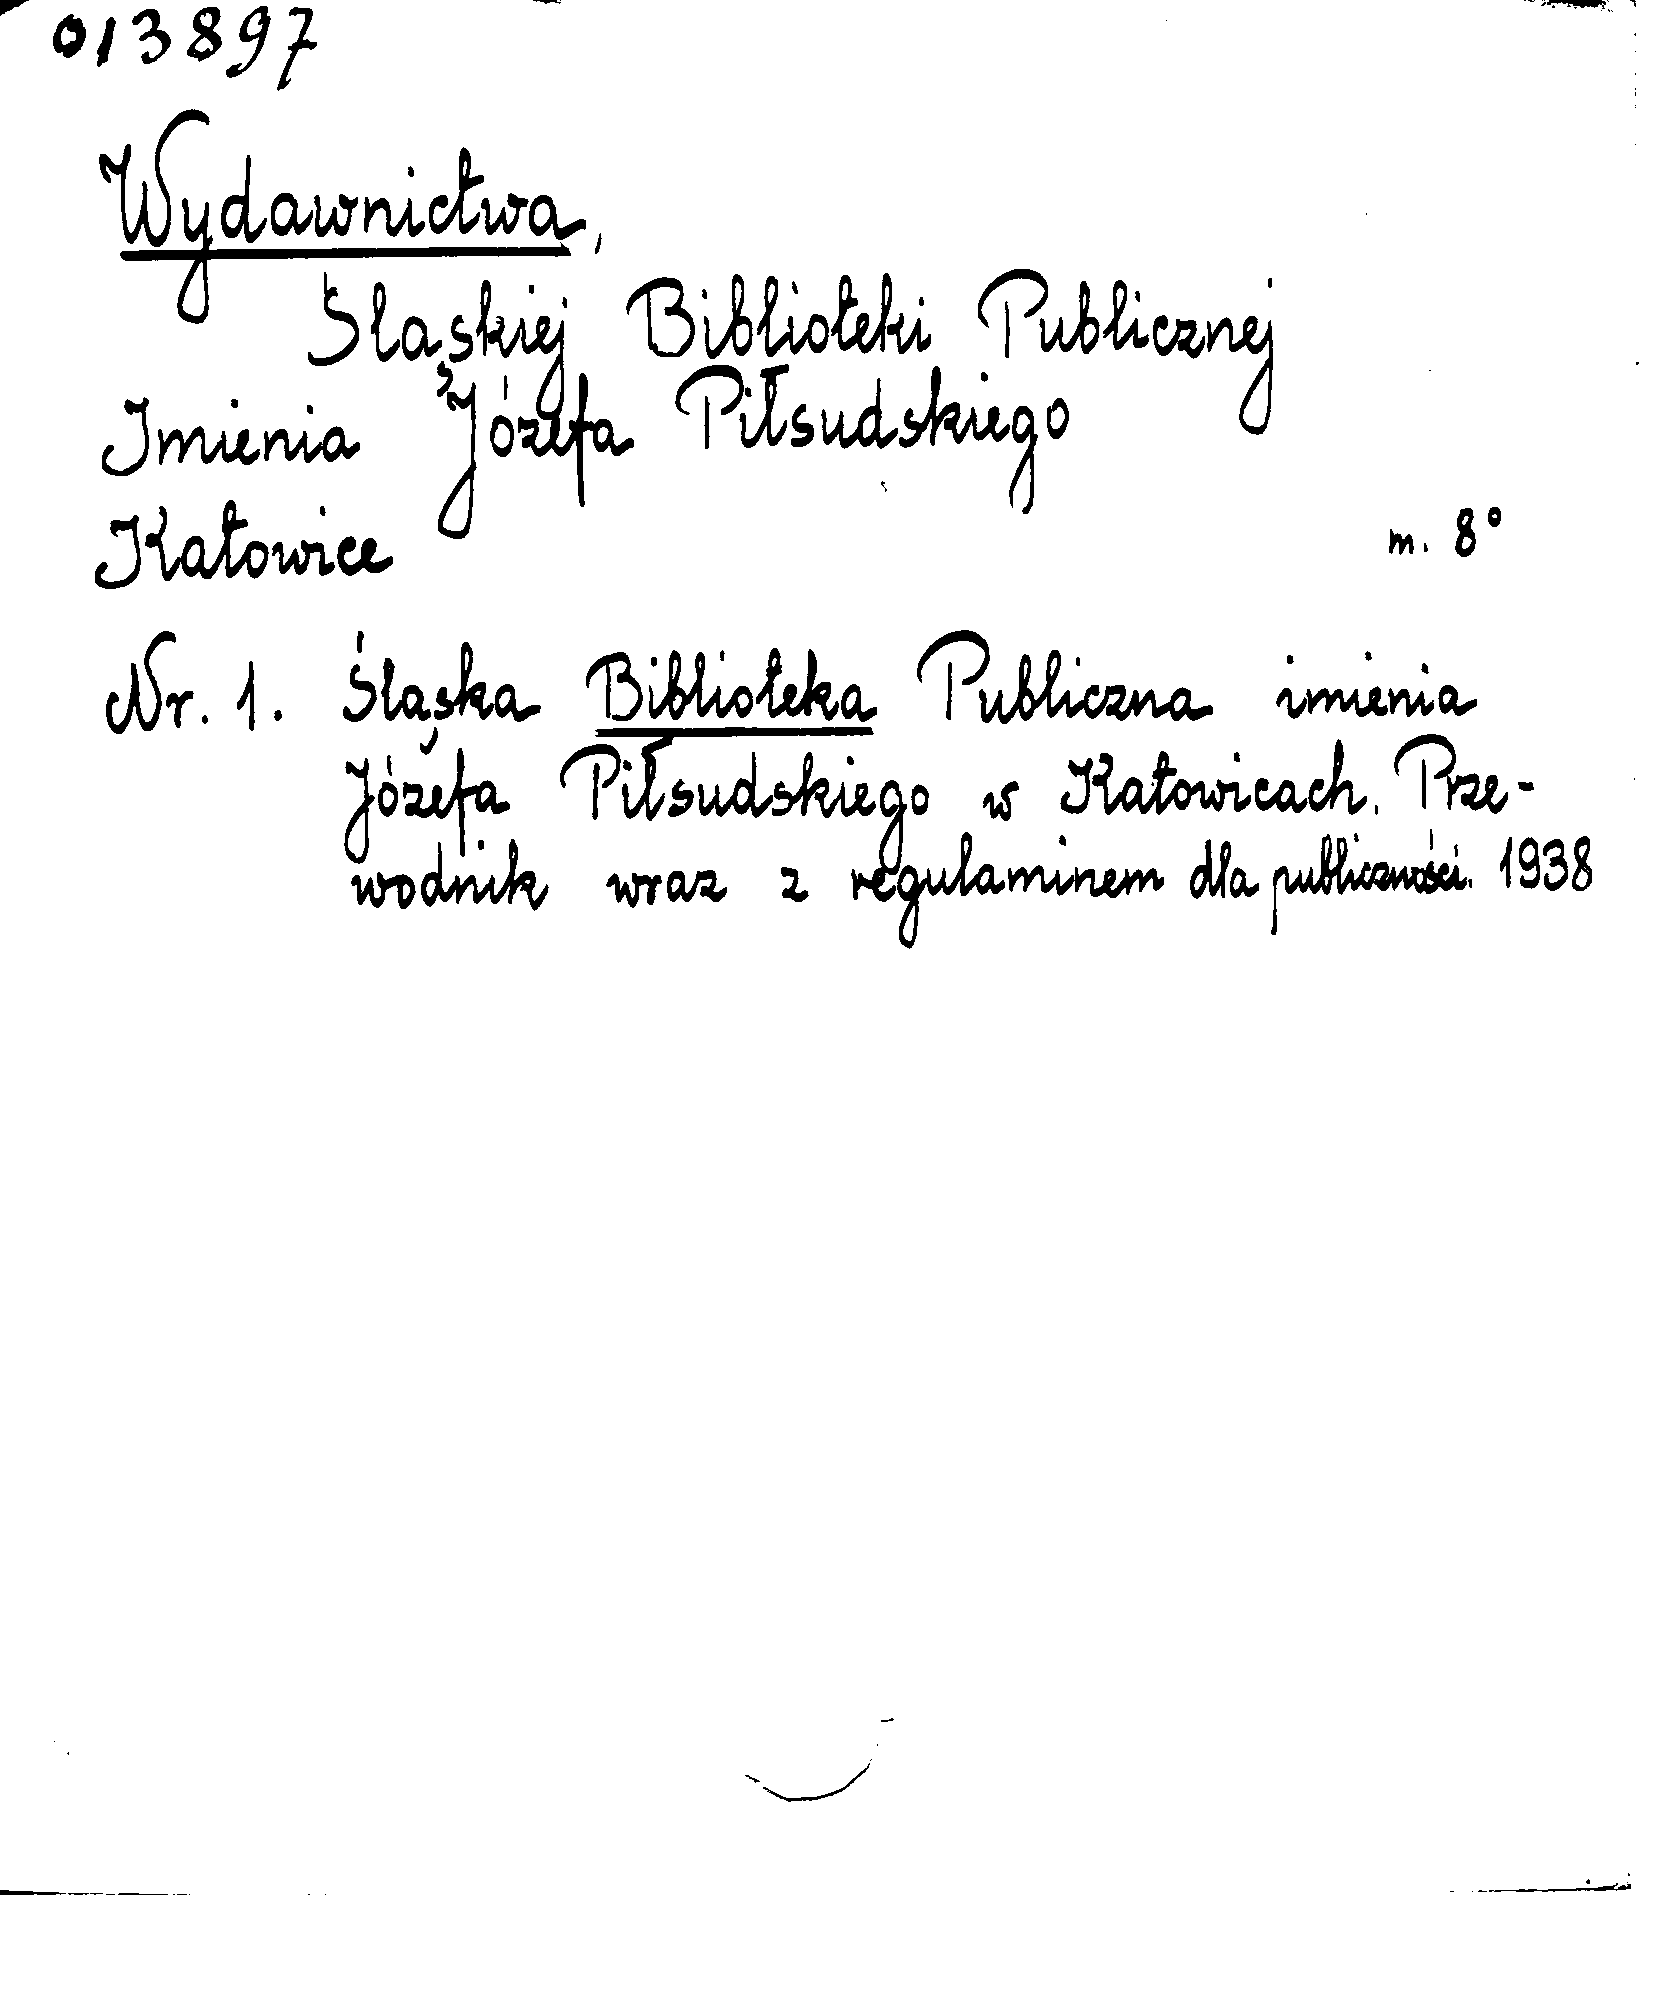 013897
Wydawnictwa,
Śląskiej Biblioteki Publicznej
Imienia Józefa Piłsudskiego
Katowice m. 8°
Nr. 1. Śląska Biblioteka Publiczna imienia
Józefa Piłsudskiego w Katowicach. Prze-
wodnik wraz z regulaminem dla publiczności. 1938